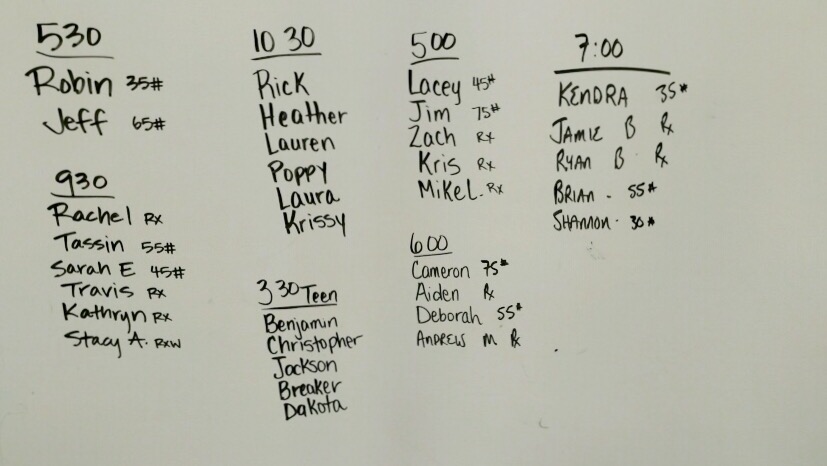 530
Robin 35#
Jeff 65#
930
Rachel Rx
Tassin 55#
Sarah E 45#
Travis Rx
Kathryn Rx
Stacy A. Rxw
10 30
Rick
Heather
Lauren
Poppy
Laura
Krissy
3 30 Teen
Benjamin
Christopher
Jackson
Breaker
Dakota
500
Lacey 45#
Jim 75#
Zach Rx
Kris Rx
Mike L. Rx
600
Cameron 75#
Aiden Rx
Deborah 55#
ANDREW M Rx
7:00
KENDRA 35#
JAMIE B Rx
RYAN B Rx
BRIAN - 55#
SHANNON - 30#